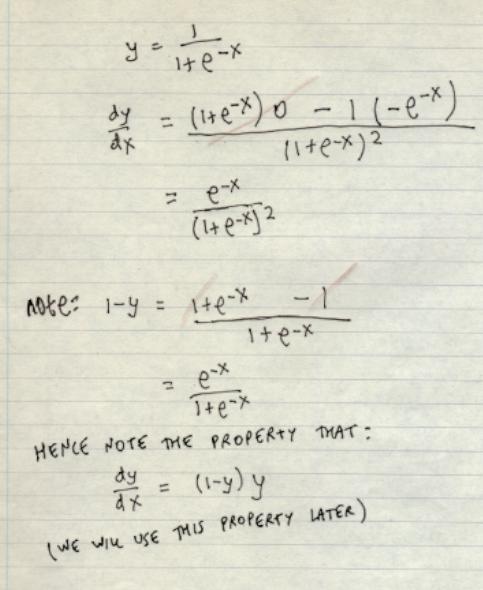 y = 1/(1+e^-x)
dy/dx = ((1+e^-x) 0 - 1 (-e^-x))/(1+e^-x)^2
= e^-x/(1+e^-x)^2
note: 1-y = (1+e^-x - 1)/(1+e^-x)
= e^-x/(1+e^-x)
HENCE NOTE THE PROPERTY THAT:
dy/dx = (1-y) y
(WE WILL USE THIS PROPERTY LATER)